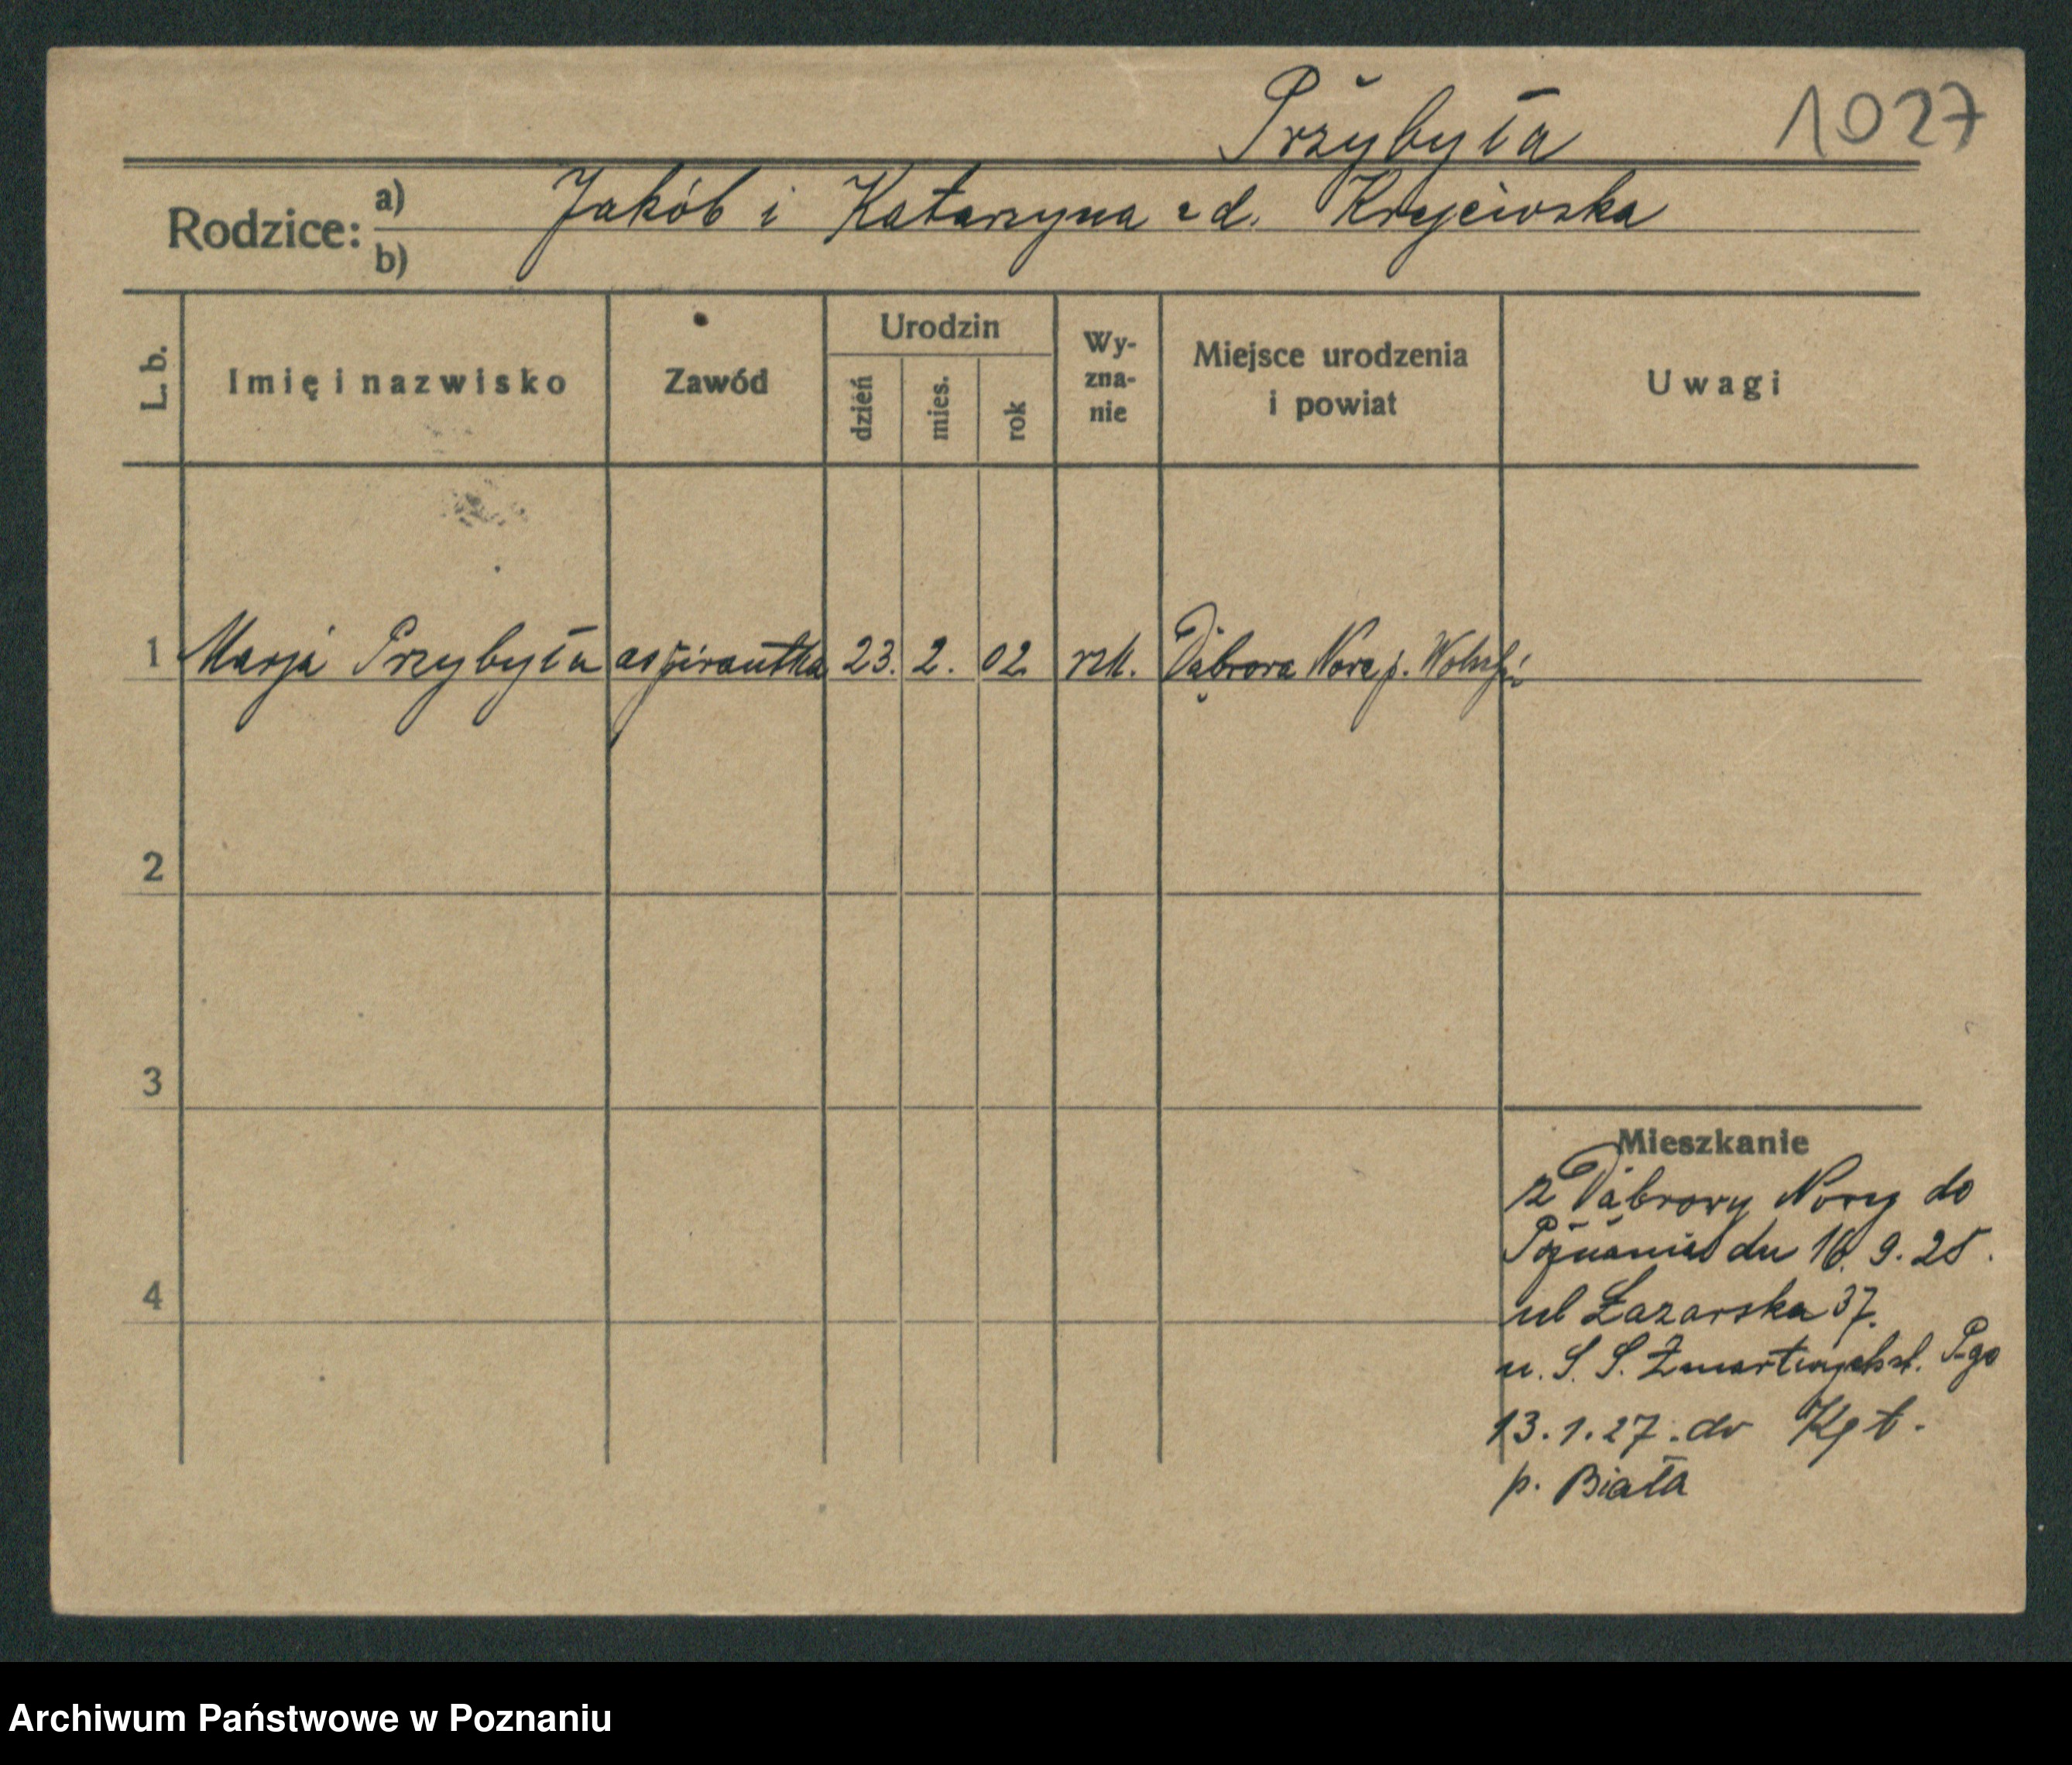 Przybyła
1027
Rodzice:
a) Jakób i Katarzyna zd. Krajewska
b)
L. b. Imię i nazwisko Zawód Urodzin dzień mies. rok Wy-zna-nie Miejsce urodzenia i powiat Uwagi
1 Marja Przybyła aspirantka 23. 2. 02 rzk. Dąbrowa Nowa p. Wolsztyn
2
3
Mieszkanie
z Dąbrowy Nowej do
Poznania dn 16. 9. 25.
4
ul Łazarska 37.
u. S. S. Zmartwychwst. P-go
13.1.27. do Kęt.
p. Biała
Archiwum Państwowe w Poznaniu